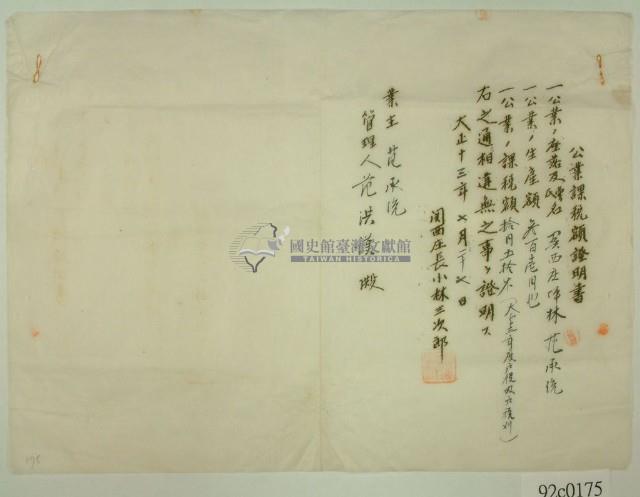 公業課税額證明書
一公業ノ座落及 名 関西庄坪林 范承
一公業ノ生産額 参百壱円也
一公業ノ課税額 拾 円五拾 (大正十三年度
右之通相違無之事ヲ證明ス
大正十三年七月二十七日
関西庄長小林三次郎
業主 范承
管理人 范洪 殿
國史館臺灣文獻館
TAIWAN HISTORICA
92c0175